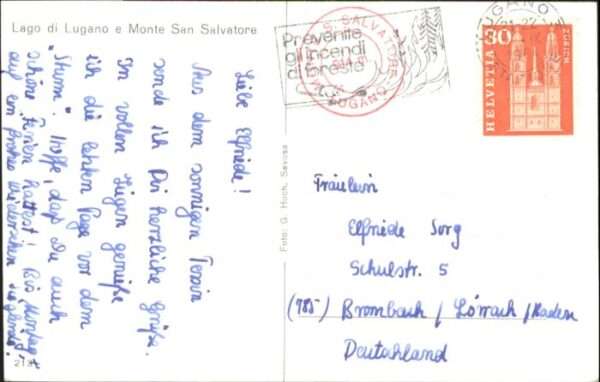 Lago di Lugano e Monte San Salvatore
Prevenite
gli incendi
di foresta
S. SALVATORE
LUGANO
LUGANO
HELVETIA
30
ZÜRICH
Liebe Elfriede!
Aus dem sonnigen Tessin
sende ich Dir herzliche Grüße.
In vollen Zügen genieße
ich die letzten Tage vor dem
"Sturm". Hoffe, daß Du auch
schöne Ferien hattest! Bis
auf ein frohes Wiedersehen
Foto: G. Hoch, Savosa
Fräulein
Elfriede Sorg
Schulstr. 5
(785) Brombach / Lörrach / Baden
Deutschland